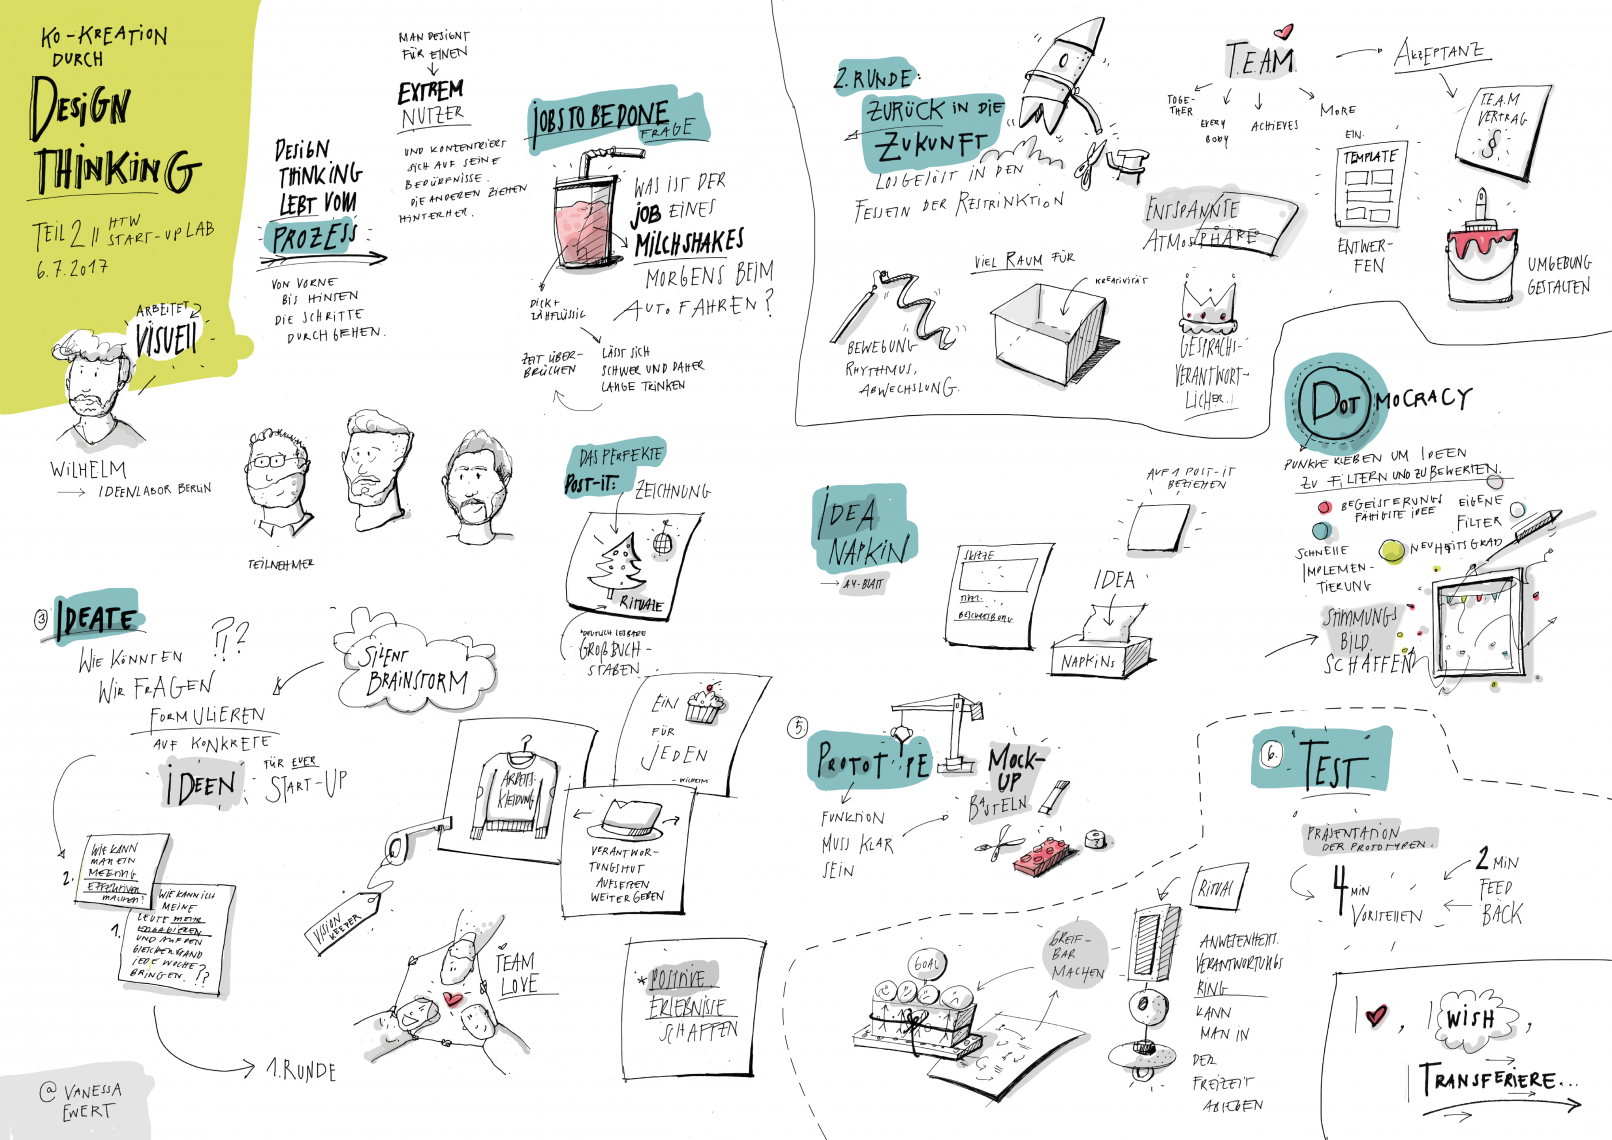 KO-KREATION
DURCH
DESIGN
THINKING
TEIL 2 || HTW
START-UP LAB
6.7.2017
ARBEITET
VISUELL
WILHELM
→ IDEENLABOR BERLIN
DESIGN
THINKING
LEBT VOM
PROZESS
VON VORNE
BIS HINTEN
DIE SCHRITTE
DURCHGEHEN.
MAN DESIGNT
FÜR EINEN
EXTREM
NUTZER
UND KONTENTRIERT
SICH AUF SEINE
BEDÜRFNISSE.
DIE ANDEREN ZIEHEN
HINTERHER.
JOBS TO BE DONE
FRAGE
WAS IST DER
JOB EINES
MILCHSHAKES
MORGENS BEIM
AUTO FAHREN?
DICK +
ZÄHFLÜSSIG
LÄSST SICH
SCHWER UND DAHER
LANGE TRINKEN
ZEIT ÜBER-
BRÜCKEN
TEILNEHMER
DAS PERFEKTE
POST-IT:
ZEICHNUNG
RITUALE
*DEUTLICH LESBARE
GROẞBUCH-
STABEN
3 IDEATE
WIE KÖNNTEN
WIR FRAGEN
?!?
FORMULIEREN
AUF KONKRETE
IDEEN
FÜR EUER
START-UP
SILENT
BRAINSTORM
2.
WIE KANN
MAN EIN
MEETING
EFFEKTIVER
MACHEN?
1.
WIE KANN ICH
MEINE
LEUTE MEHR
UND AUF DEN
GLEICHEN STAND
JEDE WOCHE
BRINGEN??
1. RUNDE
VISION
KEEPER
ARBEITS-
KLEIDUNG
EIN
FÜR
JEDEN
- WILHELM
VERANTWOR-
TUNGSHUT
AUFSETZEN
WEITERGEBEN
TEAM
LOVE
* POSITIVE
ERLEBNISSE
SCHAFFEN
@VANESSA
EWERT
2. RUNDE:
ZURÜCK IN DIE
ZUKUNFT
LOSGELÖST IN DEN
FESSELN DER RESTRINKTION
T.E.A.M.
TOGE-
THER
EVERY
BODY
ACHIEVES
MORE
AKZEPTANZ
T.E.A.M
VERTRAG
§
EIN
TEMPLATE
ENTWER-
FEN
UMGEBUNG
GESTALTEN
ENTSPANNTE
ATMOSPHÄRE
VIEL RAUM FÜR
KREATIVITÄT
BEWEGUNG
RHYTHMUS,
ABWECHSLUNG.
GESPRÄCHS-
VERANTWORT-
LICHER!
DOTMOCRACY
PUNKTE KLEBEN UM IDEEN
ZU FILTERN UND ZU BEWERTEN.
BEGEISTERUNGS
FÄHIGSTE IDEE
EIGENE
FILTER
SCHNELLE
IMPLEMEN-
TIERUNG
NEUHEITSGRAD
STIMMUNGS
BILD
SCHAFFEN
IDEA
NAPKIN
→ A4-BLATT
AUF 1 POST-IT
BEZIEHEN
SKIZZE
NAME
BESCHREIBUNG
IDEA
NAPKINS
5. PROTOTYPE
FUNKTION
MUSS KLAR
SEIN
MOCK-
UP
BASTELN
6. TEST
PRÄSENTATION
DER PROTOTYPEN.
4 MIN
VORSTELLEN
2 MIN
FEED
BACK
GOAL
GREIF-
BAR
MACHEN
RITUAL
ANWESENHEIT.
VERANTWORTUNGS
RING
KANN
MAN IN
DER
FREIZEIT
ABLEGEN
I ♥, I WISH,
I TRANSFERIERE...